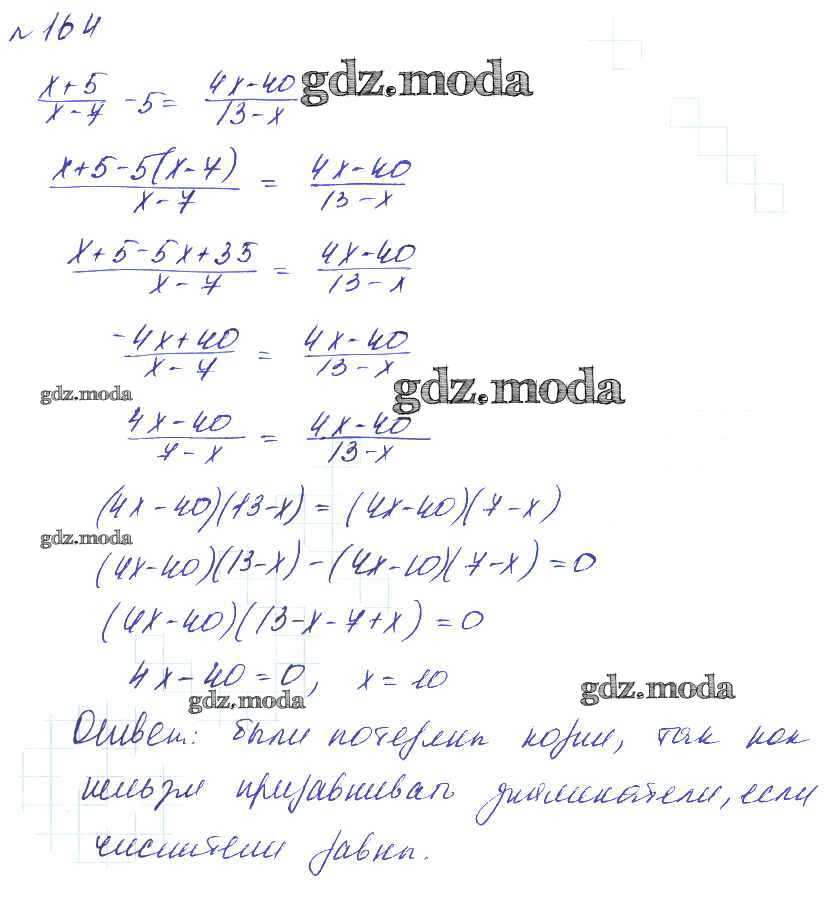 №164
(x+5)/(x-7) -5= (4x-40)/(13-x) gdz.moda
(x+5-5(x-7))/(x-7) = (4x-40)/(13-x)
(x+5-5x+35)/(x-7) = (4x-40)/(13-x)
(-4x+40)/(x-7) = (4x-40)/(13-x)
gdz.moda gdz.moda
(4x-40)/(7-x) = (4x-40)/(13-x)
(4x-40)(13-x) = (4x-40)(7-x)
gdz.moda
(4x-40)(13-x)-(4x-40)(7-x)=0
(4x-40)(13-x-7+x)=0
4x-40=0, x=10
gdz.moda gdz.moda
Ответ: были потеряны корни, так как
нельзя приравнивать знаменатели, если
числители равны.